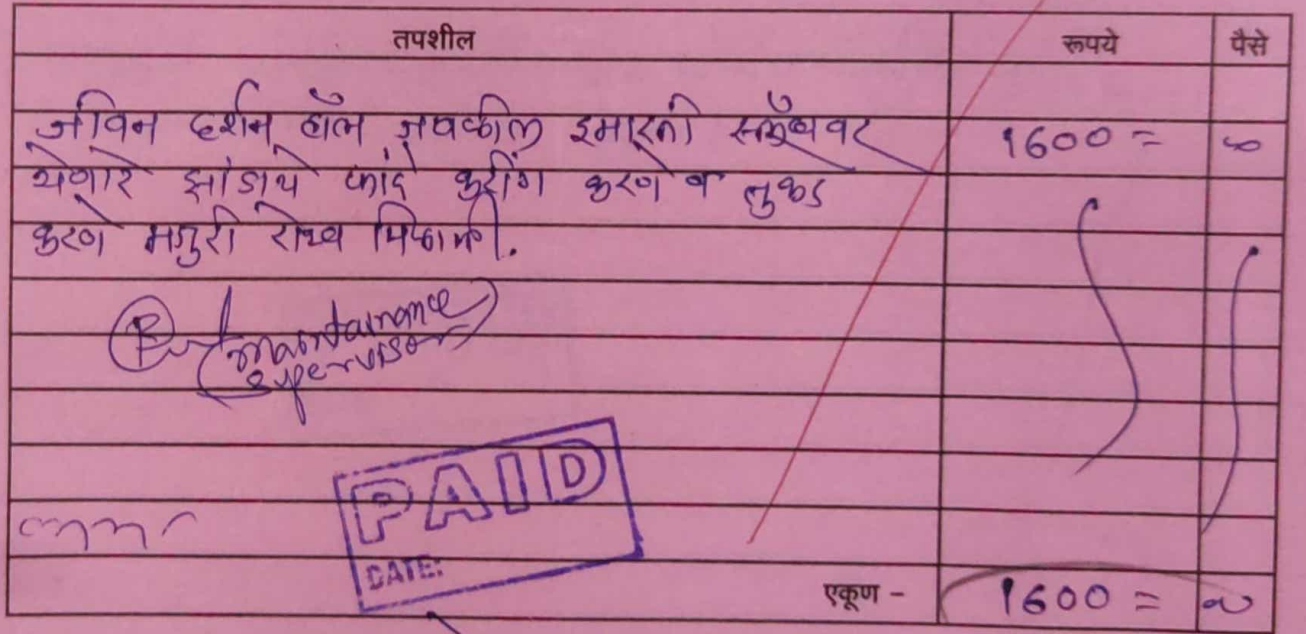 तपशील रूपये पैसे
जीवन दर्शन हॉल जवळील इमारती स्लॅबवर 1600 = 00
येणारे झाडाचे फांदे कटींग करणे व तुकडे
करणे मजुरी रोख मिळाली.
Maintainance
Supervisor
PAID
DATE:
एकूण - 1600 = 00